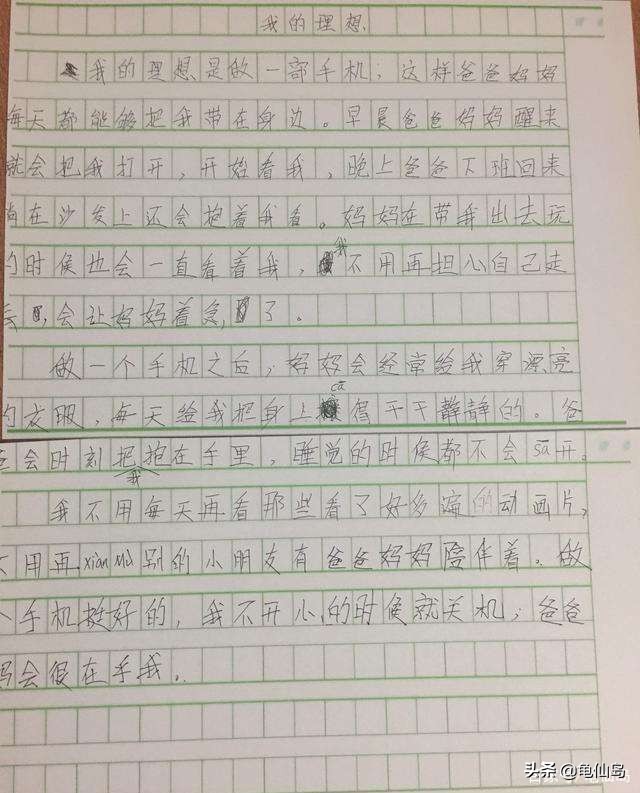 我的理想
我的理想是做一部手机；这样爸爸妈妈
每天都能够把我带在身边。早晨爸爸妈妈醒来
就会把我打开，开始看我，晚上爸爸下班回来
躺在沙发上还会抱着我看。妈妈在带我出去玩
的时候也会一直看着我，我不用再担心自己走
丢，会让妈妈着急，了。
做一个手机之后，妈妈会经常给我穿漂亮
的衣服，每天给我把身上cā得干干静静的。爸
爸会时刻把我抱在手里，睡觉的时候都不会sā开。
我不用每天再看那些看了好多遍的动画片，
不用再xiàn mù别的小朋友有爸爸妈妈陪伴着。做
个手机挺好的，我不开心的时候就关机；爸爸
妈会很在乎我.
头条 @龟仙岛